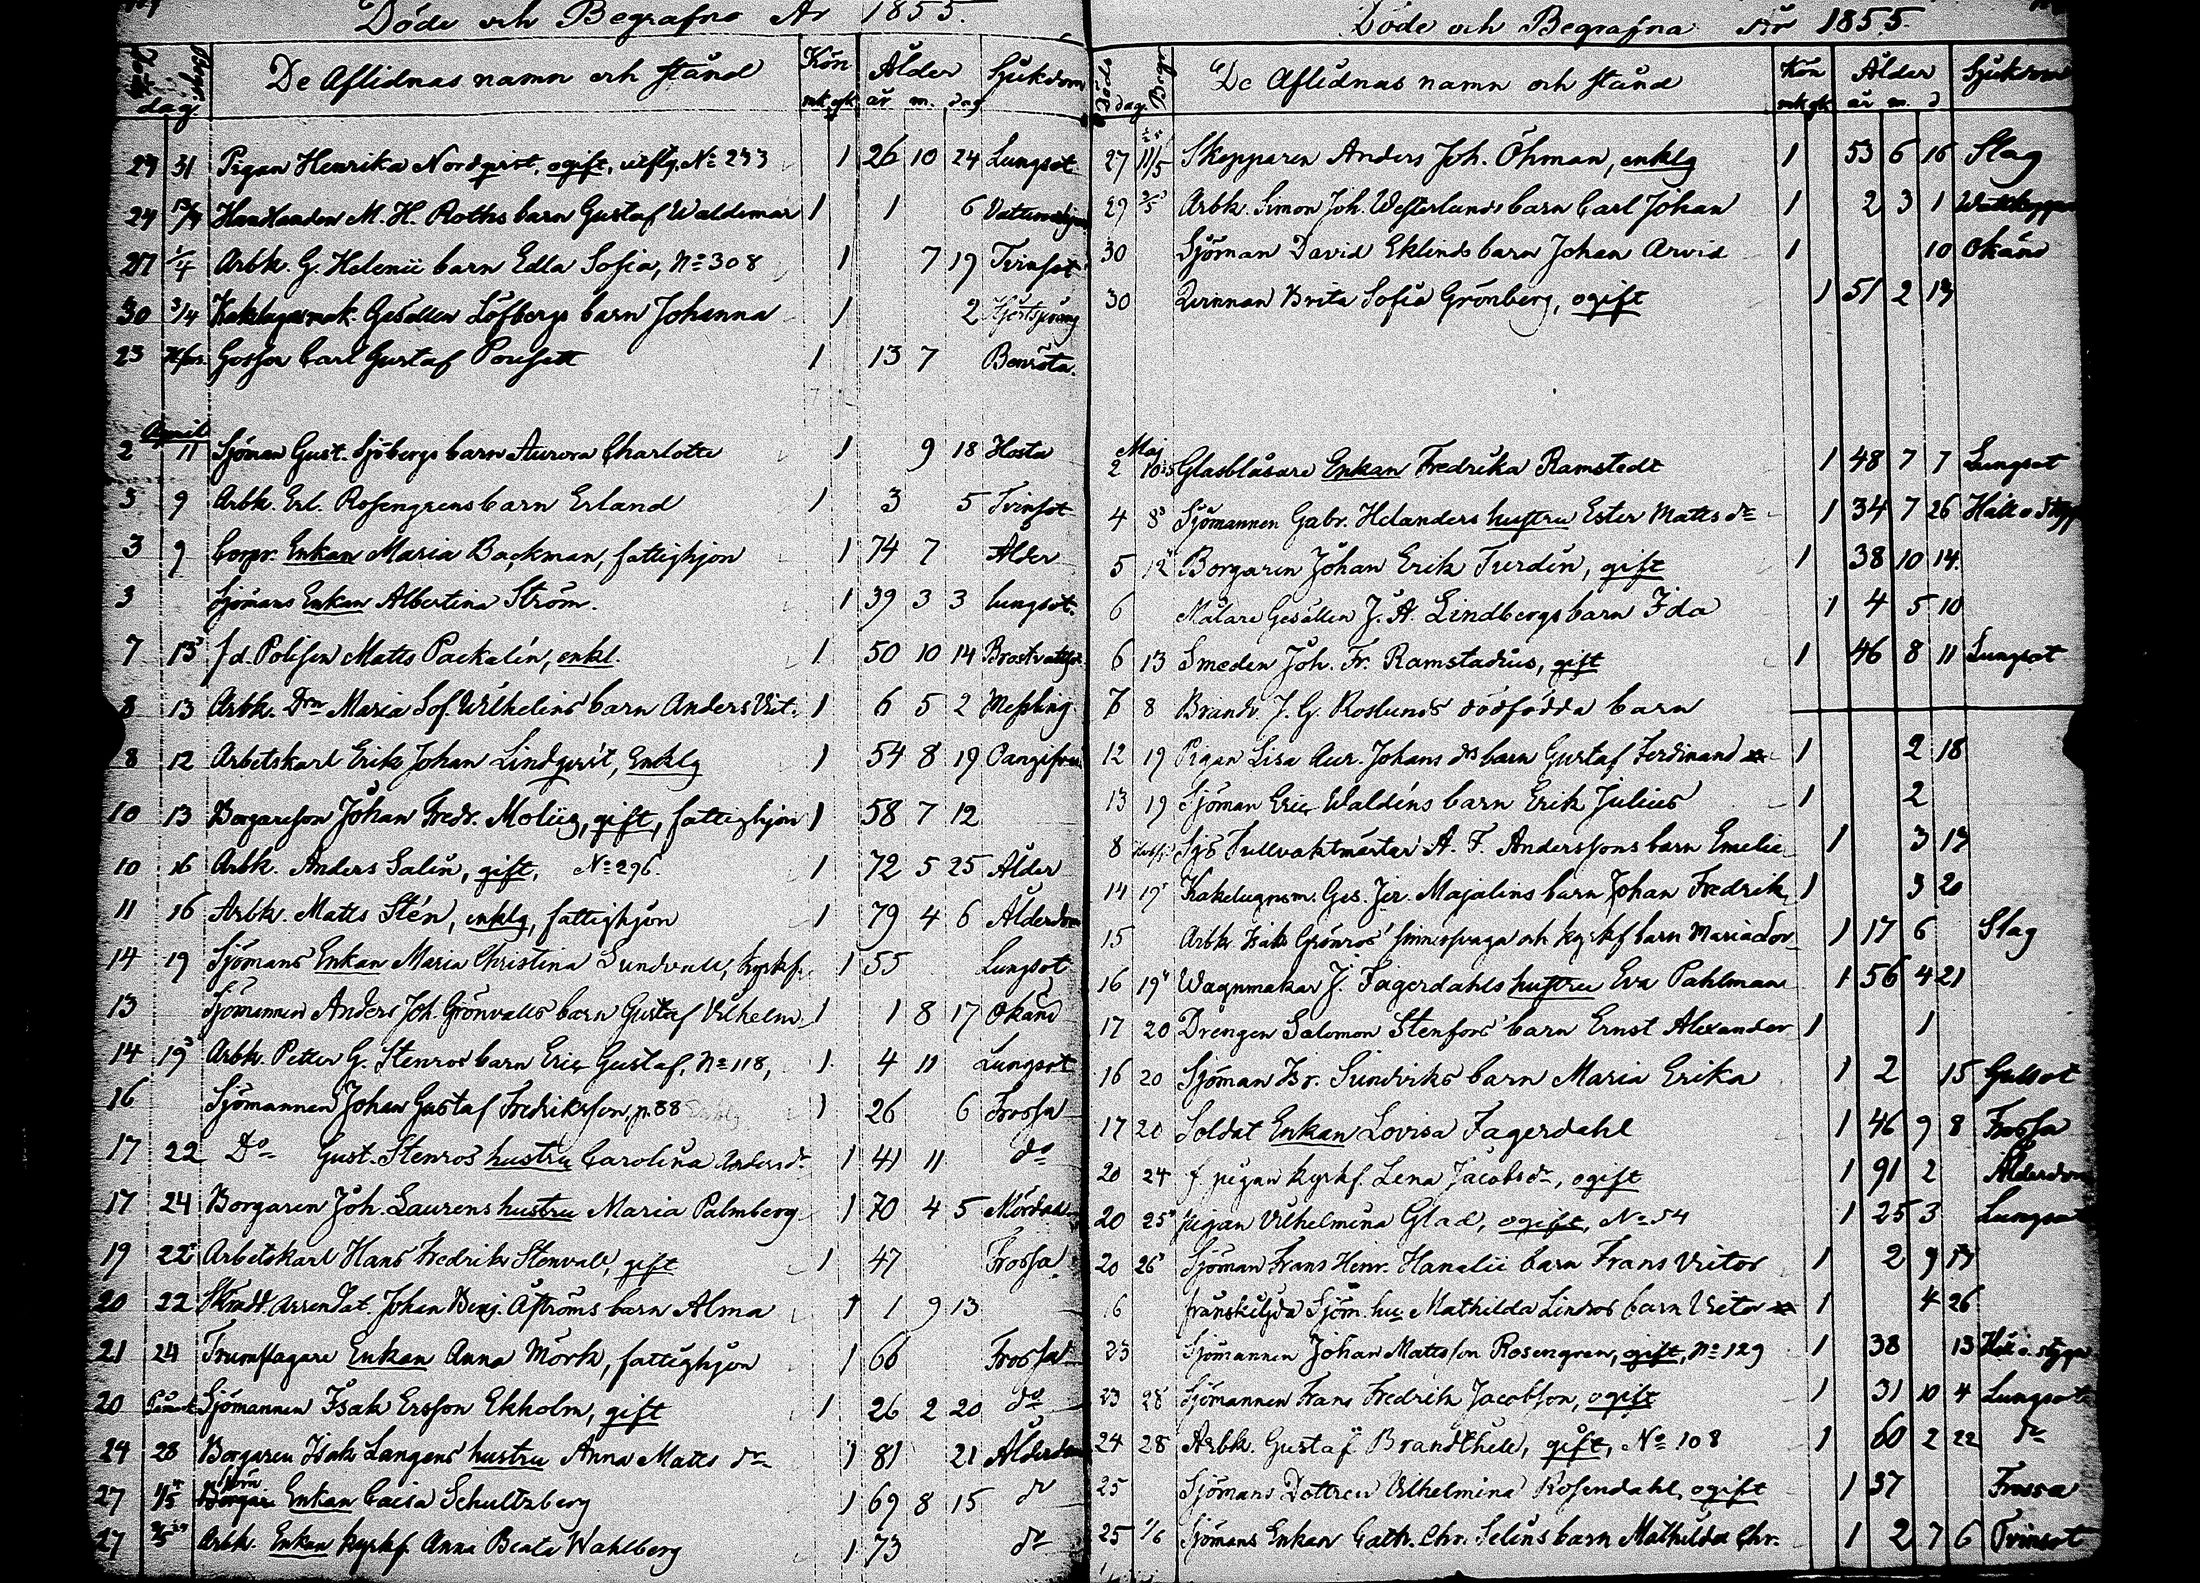 Döde och Begrafne År 1855.
Döds Begr. dag. De Aflidnas namn och stånd Kön mk. qk. Ålder år m. dag Sjukdom
29 31 Pigan Henrika Nordqvist, ogift, No 233 1 26 10 24 Lungsot
24 Handlanden M. H. Roths barn Gustaf Waldemar 1 1 6
27 1/4 Arbk. G. Helenii barn Edla Sofia, No 308 1 7 19 Tvinsot
30 3/4 Kakelugnsmak. Gesällen Löfbergs barn Johanna 1 2
23 Gossen Carl Gustaf 1 13 7 Benröta.
April
2 11 Sjöman Gust. Sjöbergs barn Aurora Charlotte 1 9 18 Hosta
5 9 Arbk. Erl. Rosengrens barn Erland 1 3 5 Tvinsot
3 9 Corpr. Enkan Maria Backman, fattighjon 1 74 7 Ålder
3 Sjömans Enkan Albertina Ström. 1 39 3 3 Lungsot.
7 13 f.d. Polisen Matts Packalén, enkl. 1 50 10 14
8 13 Arbk. Drn Maria Sof. Wilhelins barn Anders Vict. 1 6 5 2 Messling
8 12 Arbetskarl Erik Johan Lindqvist, Enklg 1 54 8 19
10 13 Borgareson Johan Fredr. gift, fattighjon 1 58 7 12
10 16 Arbk. Anders Salin, gift, No 296. 1 72 5 25 Ålder
11 16 Arbk. Matts Stén, enklg, fattighjon 1 79 4 6 Ålderdom
14 19 Sjömans Enkan Maria Christina Sundvall, kyrkf. 1 55 Lungsot
13 Sjömannen Anders Joh. Grönvalls barn Gustaf Vilhelm 1 1 8 17 Okänd
14 19 Arbk. Petter G. Stenros barn Eric Gustaf, No 118, 1 4 11 Lungsot
16 Sjömannen Johan Gustaf Fredriksson, p. 88 1 26 6 Frossa
17 22 Do Gust. Stenros hustru Carolina Andersdr 1 41 11 do
17 24 Borgaren Joh. Laurens hustru Maria Palmberg 1 70 4 5
19 22 Arbetskarl Hans Fredrik Stenvall, gift 1 47 Frossa
20 22 Johan Benj. Åströms barn Alma 1 1 9 13
21 24 Trumslagare Enkan Anna Mörk, fattighjon 1 66 Frossa
20 Sjömannen Isak Ersson Ekholm, gift 1 26 2 20 do
24 28 Borgaren Isak Langens hustru Anna Matts dr 1 81 21 Ålderdom
27 Enkan Caisa Schultzberg 1 69 8 15 do
27 Arbk. Enkan kyrkf. Anna Beata Wahlberg 1 73 do
Döde och Begrafna År 1855.
Döds dag. Begr. De Aflidnas namn och stånd Kön mk qk Ålder år m. d Sjukdom
27 11/5 Skepparen Anders Joh. Öhman, enklg 1 53 6 16 Slag
29 Arbk. Simon Joh. Westerlunds barn Carl Johan 1 2 3 1
30 Sjöman David Eklinds barn Johan Arvid 1 10 Okänd
30 Qvinnan Brita Sofia Grönberg, ogift 1 51 2 13
Maj
2 10 Glasblåsare Enkan Fredrika Ramstedt 1 48 7 7 Lungsot
4 8 Sjömannen Gabr. Helanders hustru Ester Matts dr 1 34 7 26
5 12 Borgaren Johan Erik Turdin, gift 1 38 10 14.
6 Målare Gesällen J. A. Lindbergs barn Ida 1 4 5 10
6 13 Smeden Joh. Fr. Ramstadius, gift 1 46 8 11 Lungsot
7 8 Brandv. J. G. Roslunds dödfödda barn
12 19 Pigan Lisa Aur. Johans drs barn Gustaf Ferdinand 1 2 18
13 19 Sjöman Eric Waldéns barn Erik Julius 1 2
8 Sjö Tullvaktmästar A. F. Anderssons barn Emelie 1 3 13
14 19 Kakelugnsm. Ges. Jer. Majalins barn Johan Fredrik 1 3 20
15 Arbk. Isak Grönros' sinnessvaga och kyrkf barn Maria Dor. 1 17 6 Slag
16 19 Wagnmakar J. Fagerdahls hustru Eva Pahlman 1 56 4 21
17 20 Drengen Salomon Stenfors' barn Ernst Alexander 1 1
16 20 Sjöman Fr. Sundviks barn Maria Erika 1 2 15 Gulsot
17 20 Soldat Enkan Lovisa Fagerdahl 1 46 9 8 Frossa
20 24 f. pigan kyrkf. Lena Jacobsdr, ogift 1 91 2 Ålderdom
20 25 pigan Vilhelmina Glad, ogift, No 54 1 25 3 Lungsot
20 26 Sjöman Frans Henr. Hanelii barn Frans Victor 1 2 9 13
16 frånskiljda Sjöm. hu Mathilda Lindros barn Victor 1 4 26
23 Sjömannen Johan Mattsson Rosengren, gift, No 129 1 38 13
23 28 Sjömannen Frans Fredrik Jacobsson, ogift 1 31 10 4 Lungsot
24 28 Arbk. Gustaf Brandthell, gift, No 108 1 60 2 22 do
25 Sjömans Dottren Vilhelmina Rosendahl, ogift 1 37 Frossa
25 1/6 Sjömans Enkan Cath. Chr. Selins barn Mathilda Chr. 1 2 7 6 Tvinsot